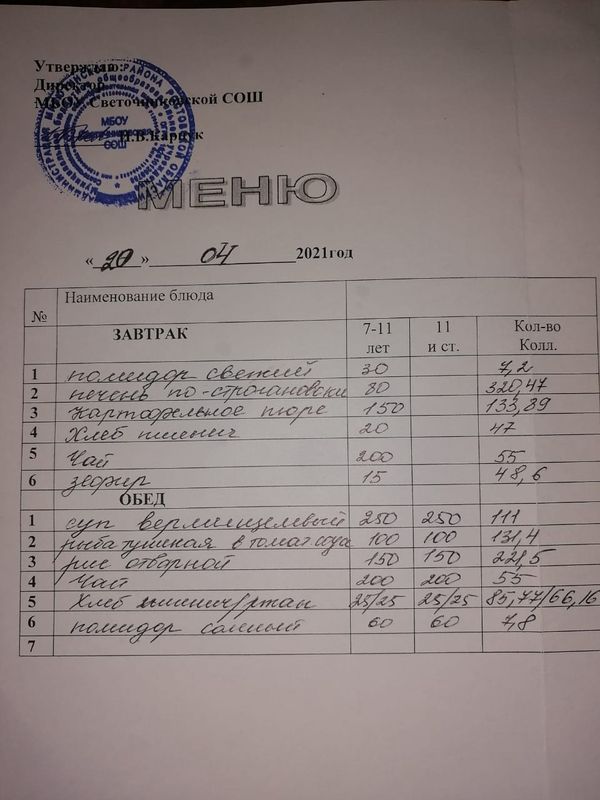 Утверждаю:
Директор
МБОУ Светочниковской СОШ
И.В.Карпук
МБОУ
СОШ
МЕНЮ
« 20 » 04 2021год
№ Наименование блюда
ЗАВТРАК 7-11 лет 11 и ст. Кол-во Колл.
1 помидор свежий 30 7,2
2 печень по-строгановски 80 320,47
3 Картофельное пюре 150 133,89
4 Хлеб пшенич 20 47
5 Чай 200 55
6 зефир 15 48,6
ОБЕД
1 суп вермишелевый 250 250 111
2 рыба тушеная в томат. соусе 100 100 131,4
3 рис отварной 150 150 221,5
4 Чай 200 200 55
5 Хлеб пшенич/ржан 25/25 25/25 85,77/66,16
6 помидор соленый 60 60 7,8
7